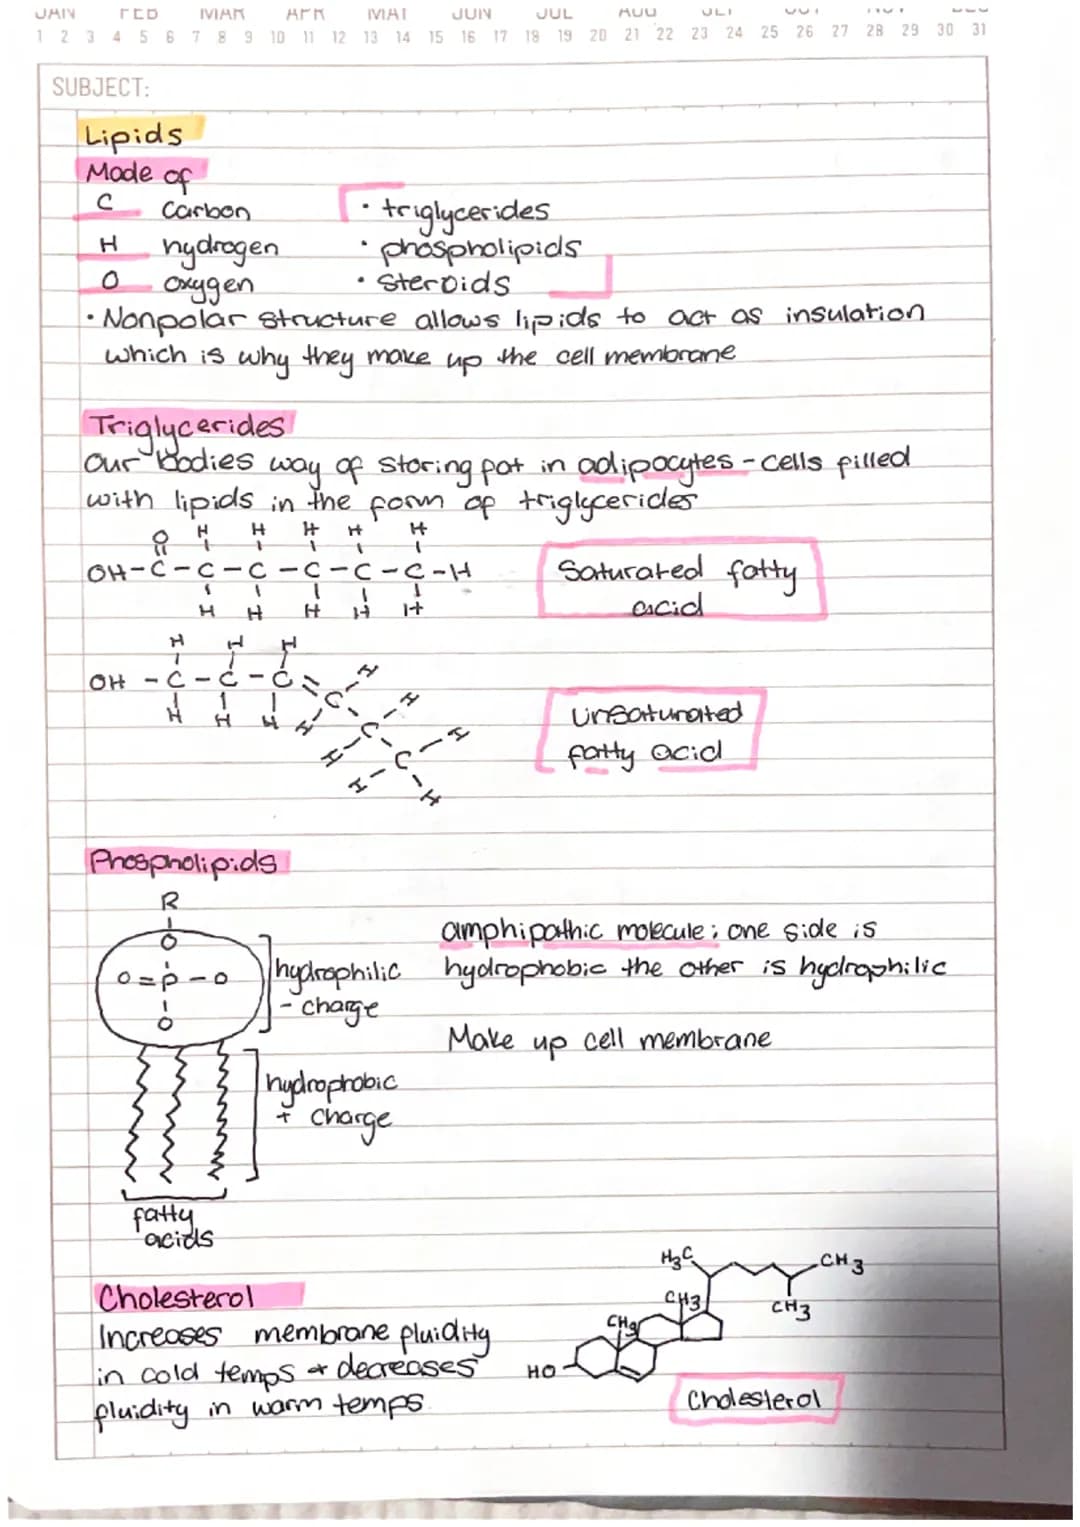 JAN FEB MAR APR MAY JUN JUL AUG SEP OCT NOV DEC
1 2 3 4 5 6 7 8 9 10 11 12 13 14 15 16 17 18 19 20 21 22 23 24 25 26 27 28 29 30 31
SUBJECT:
Lipids
Made of
C Carbon
H hydrogen
O oxygen
• triglycerides
• phospholipids
• steroids
• Nonpolar structure allows lipids to act as insulation
which is why they make up the cell membrane
Triglycerides
Our bodies way of storing fat in adipocytes - cells filled
with lipids in the form of triglycerides
O H H H H H
OH-C-C-C-C-C-C-H
H H H H H
Saturated fatty
acid
H H H
OH-C-C-C=C-H
H H H H C-H
H C-H
H H
Unsaturated
fatty acid
Phospholipids
R
O
O=P-O
O
hydrophilic
- charge
hydrophobic
+ charge
fatty
acids
amphipathic molecule; one side is
hydrophobic the other is hydrophilic
Make up cell membrane
Cholesterol
Increases membrane fluidity
in cold temps & decreases
fluidity in warm temps.
H3C
CH3
CH3
CH3
CH3
HO
Cholesterol